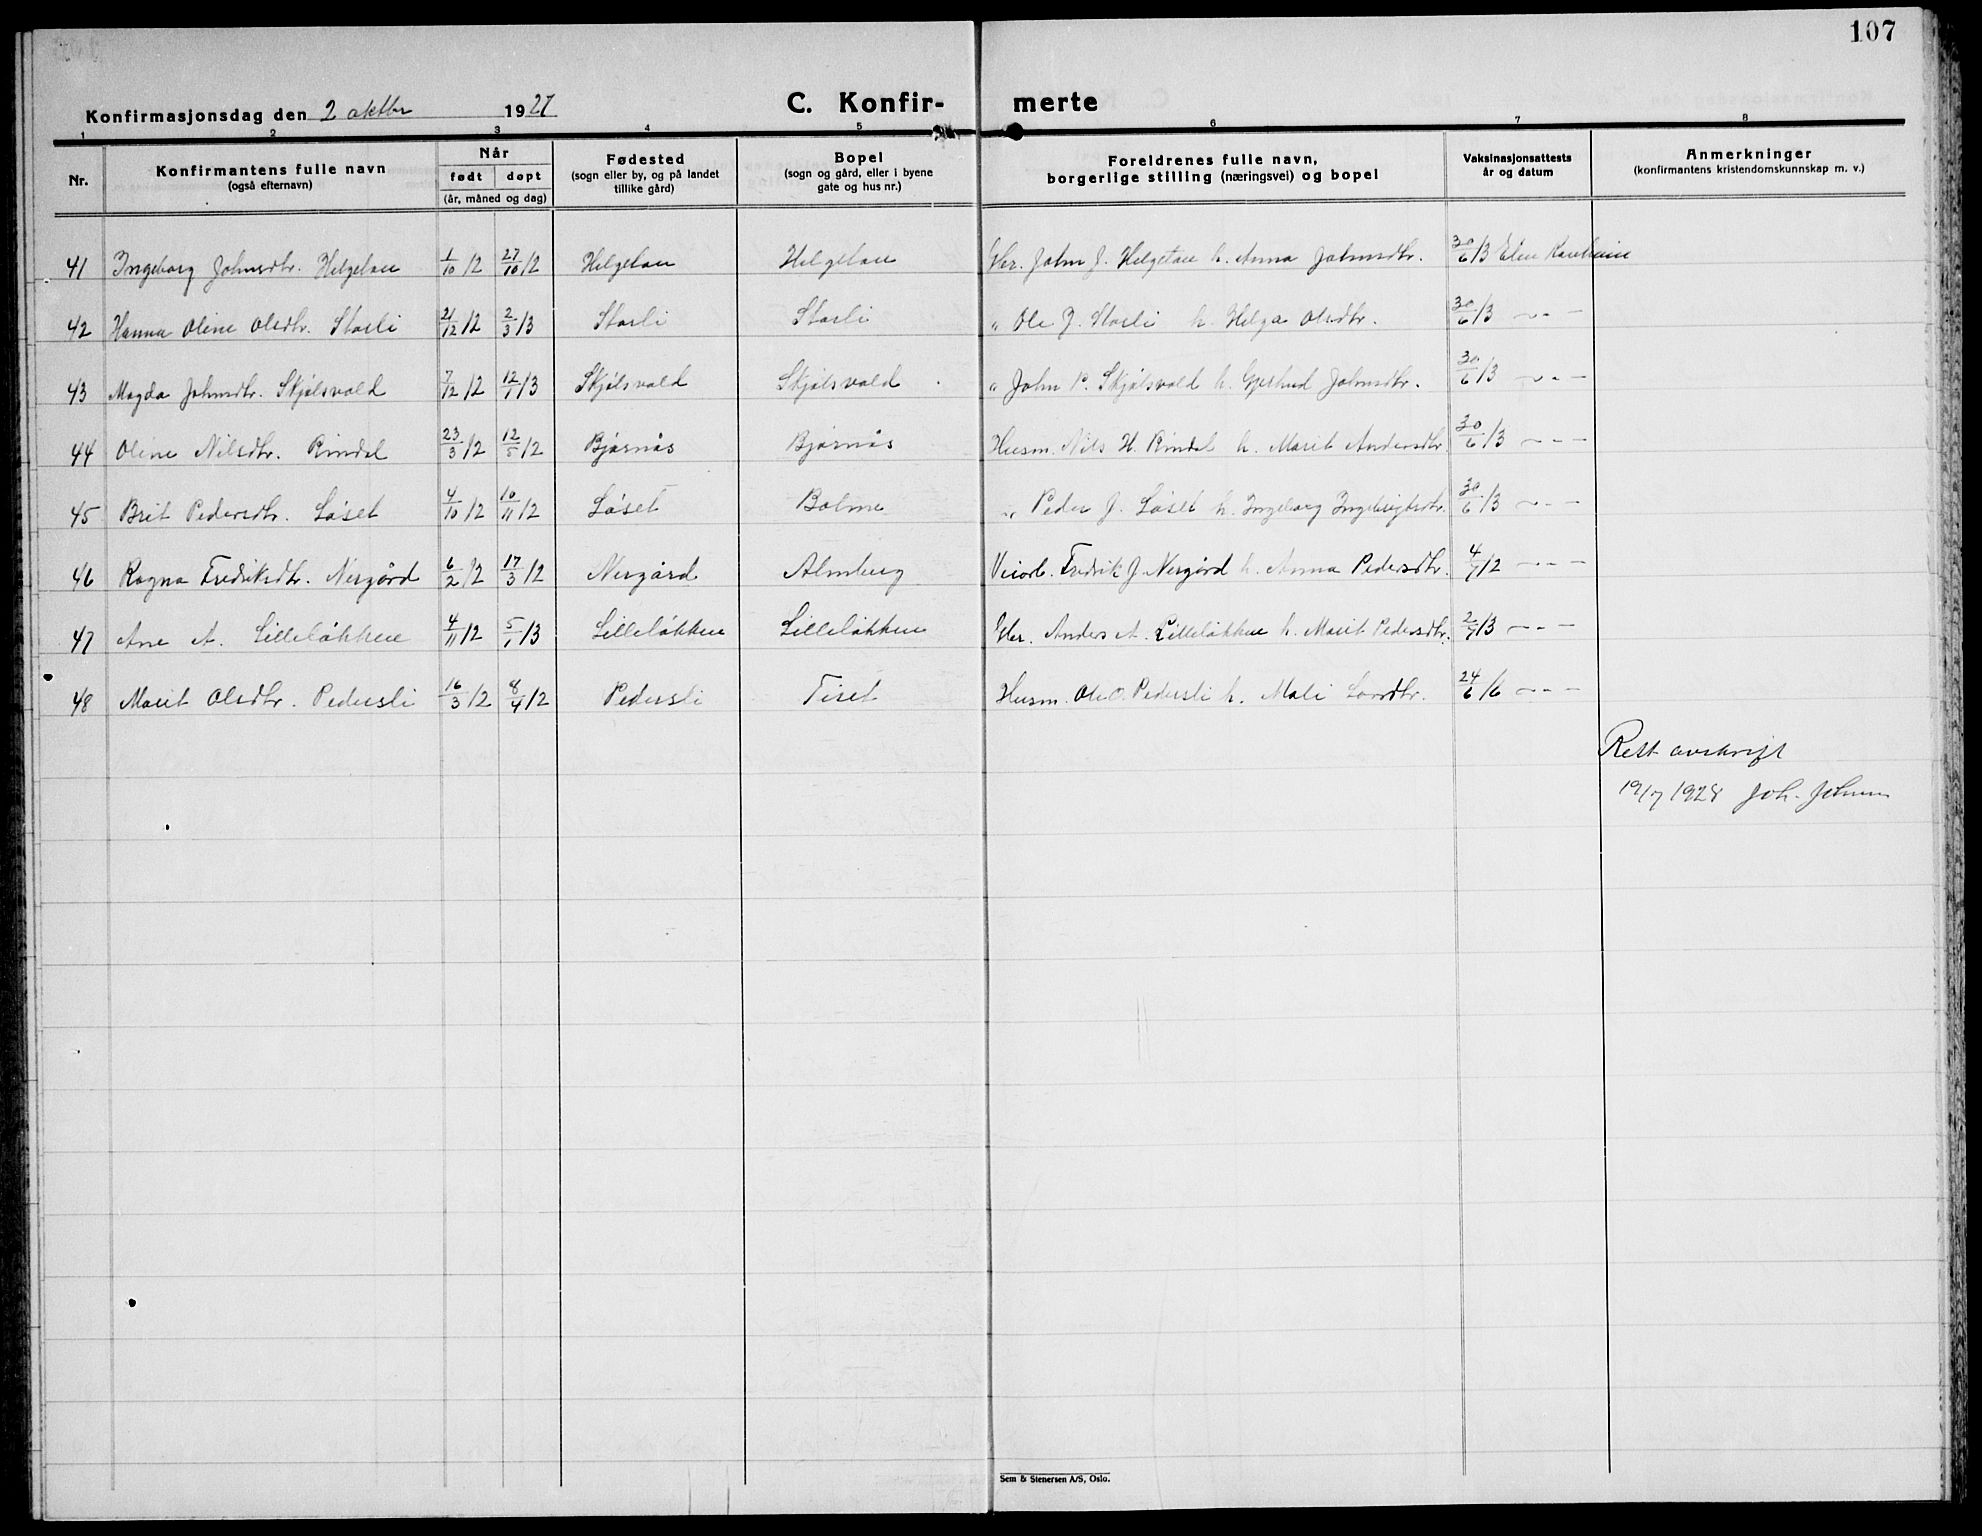 107
Konfirmasjonsdag den 2 oktbr 1927 C. Konfir- merte
1 2 3 4 5 6 7 8
Nr. Konfirmantens fulle navn (også efternavn) Når født døpt (år, måned og dag) Fødested (sogn eller by, og på landet tillike gård) Bopel (sogn og gård, eller i byene gate og hus nr.) Foreldrenes fulle navn, borgerlige stilling (næringsvei) og bopel Vaksinasjonsattests år og datum Anmerkninger (konfirmantens kristendomskunnskap m. v.)
41 Ingeborg Johnsdtr. Helgetun 1/10 12 27/10 12 Helgetun Helgetun Gbr. John J. Helgetun h. Anna Johnsdtr. 30/6 13 Elen
42 Hanna Oline Olsdtr. Storli 21/12 12 2/3 13 Storli Storli " Ole J. Storli h. Helga Olsdtr. 30/6 13 — " —
43 Magda Johnsdtr. Skjølsvold 7/12 12 12/1 13 Skjølsvold Skjølsvold " John P. Skjølsvold h. Gjertrud Johnsdtr. 30/6 13 — " —
44 Oline Nilsdtr. Rindal 23/3 12 12/5 12 Bjørnås Bjørnås Husm. Nils H. Rindal h. Marit Andersdtr. 30/6 13 — " —
45 Brit Pedersdtr. Løset 4/10 12 10/11 12 Løset Bolme " Peder J. Løset h. Ingeborg Ingebrigtsdtr. 30/6 13 — " —
46 Ragna Fredriksdtr. Nergård 6/2 12 17/3 12 Nergård Almberg Veiarb. Fredrik J. Nergård h. Anna Pedersdtr. 4/7 12 — " —
47 Ane A. Lilleløkken 4/11 12 5/1 13 Lilleløkken Lilleløkken Gbr. Anders A. Lilleløkken h. Marit Pedersdtr. 2/7 13 — " —
48 Marit Olsdtr. Pedersli 16/3 12 8/4 12 Pedersli Tiset Husm. Ole O. Pedersli h. Mali Larsdtr. 24/6 16 — " —
Rett avskrift
19/7 1928 Joh.
Sem & Stenersen A/S, Oslo.